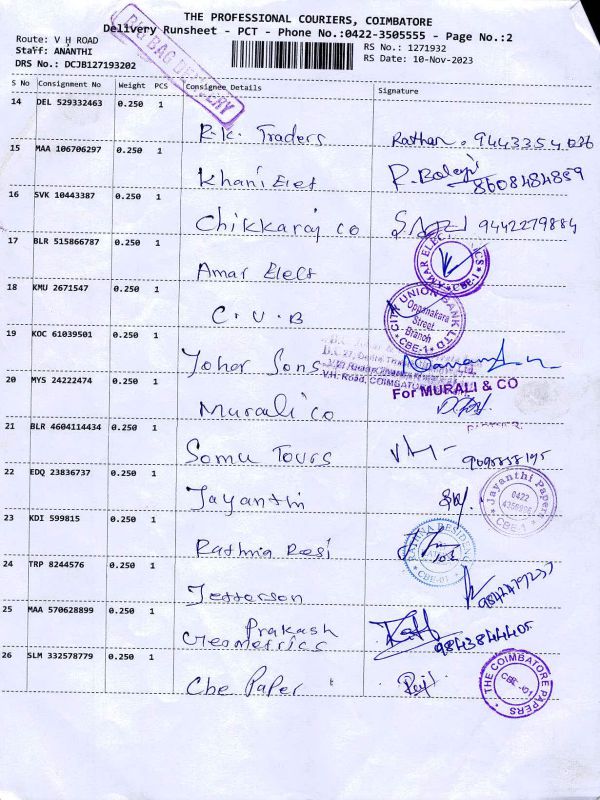 THE PROFESSIONAL COURIERS, COIMBATORE
Delivery Runsheet - PCT - Phone No.:0422-3505555 - Page No.:2
Route: V H ROAD
Staff: ANANTHI
DRS No.: DCJB127193202
RS No.: 1271932
RS Date: 10-Nov-2023
BIG BAG DELIVERY
S No Consignment No Weight PCS Consignee Details Signature
14 DEL 529332463 0.250 1
R.K. Traders Rathan. 9443354026
15 MAA 106706297 0.250 1
Khani Elet P. Balaji
8608484859
16 SVK 10443387 0.250 1
Chikkaraj co 9442279884
17 BLR 515866787 0.250 1
Amar Elect
AMAR ELECTRONICS CBE-1
18 KMU 2671547 0.250 1
C.U.B
CITY UNION BANK LTD
Oppanakara
Street
Branoh
CBE-1
19 KOC 61039501 0.250 1
Joher Sons
V.H. Road, COIMBATORE
20 MYS 24222474 0.250 1
Murali co
For MURALI & CO
21 BLR 4604114434 0.250 1
Somu Tours
22 EDQ 23836737 0.250 1
Jayanthi
Jayanthi Papers
0422
CBE-1
23 KDI 599815 0.250 1
Rathna Resi
RATHNA RESIDENCY
CBE-01
24 TRP 8244576 0.250 1
Jefferson
25 MAA 570628899 0.250 1
Prakash
Geometrics 9843844405
26 SLM 332578779 0.250 1
Cbe Paper
THE COIMBATORE PAPERS
CBE-01